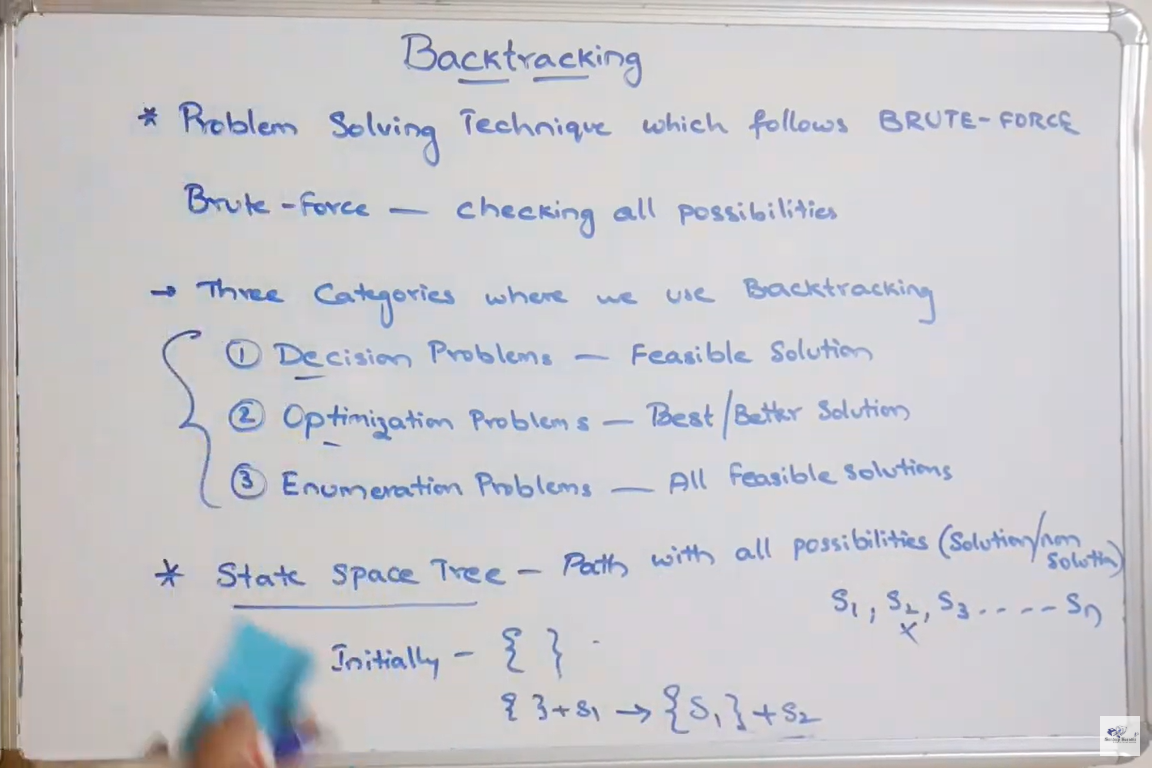 Backtracking
* Problem Solving Technique which follows BRUTE-FORCE
Brute-force — checking all possibilities
→ Three Categories where we use Backtracking
① Decision Problems — Feasible Solution
② Optimization Problems — Best/Better Solution
③ Enumeration Problems — All feasible solutions
* State Space Tree — Path with all possibilities (Solution/non
S1, S2, S3 ..... Sn
x
Initially - { }
{ }+S1 → {S1}+S2